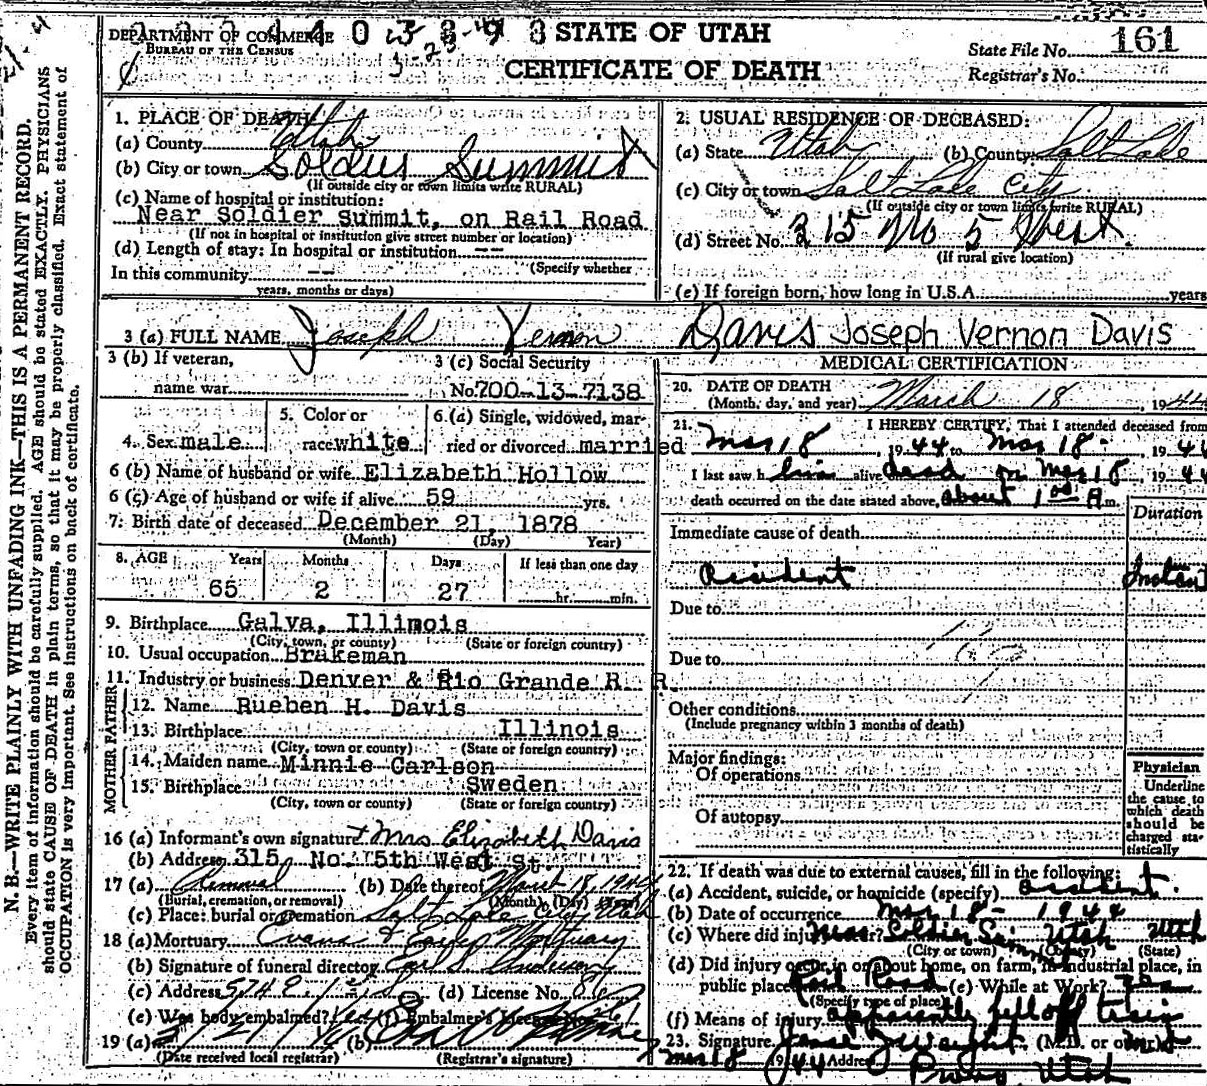 DEPARTMENT OF COMMERCE
BUREAU OF THE CENSUS
STATE OF UTAH
CERTIFICATE OF DEATH
State File No. 161
Registrar's No.
N. B.—WRITE PLAINLY WITH UNFADING INK—THIS IS A PERMANENT RECORD.
Every item of information should be carefully supplied. AGE should be stated EXACTLY. PHYSICIANS
should state CAUSE OF DEATH in plain terms, so that it may be properly classified. Exact statement of
OCCUPATION is very important. See instructions on back of certificate.
1. PLACE OF DEATH
(a) County Utah
(b) City or town Soldies Summit
(If outside city or town limits write RURAL)
(c) Name of hospital or institution:
Near Soldier Summit, on Rail Road
(If not in hospital or institution give street number or location)
(d) Length of stay: In hospital or institution --
(Specify whether
In this community --
years, months or days)
2. USUAL RESIDENCE OF DECEASED:
(a) State Utah (b) County Salt Lake
(c) City or town Salt Lake City
(If outside city or town limits write RURAL)
(d) Street No. 315 No 5 West.
(If rural give location)
(e) If foreign born, how long in U.S.A. years
3 (a) FULL NAME Joseph Vernon Davis Joseph Vernon Davis
3 (b) If veteran,
name war
3 (c) Social Security
No. 700-13-7138
4. Sex male
5. Color or
race white
6. (a) Single, widowed, mar-
ried or divorced married
6 (b) Name of husband or wife Elizabeth Hollow
6 (c) Age of husband or wife if alive 59 yrs.
7. Birth date of deceased December 21, 1878
(Month) (Day) Year)
8. AGE Years Months Days If less than one day
65 2 27 hr. min.
9. Birthplace Galva, Illinois
(City, town, or county) (State or foreign country)
10. Usual occupation Brakeman
11. Industry or business Denver & Rio Grande R. R.
FATHER
12. Name Rueben H. Davis
13. Birthplace Illinois
(City, town or county) (State or foreign country)
MOTHER
14. Maiden name Minnie Carlson
15. Birthplace Sweden
(City, town or county) (State or foreign country)
16 (a) Informant's own signature + Mrs Elizabeth Davis
(b) Address 315 No. 5th West St.
17 (a) Removal (b) Date thereof March 18, 1944
(Burial, cremation, or removal) (Month) (Day) (Year)
(c) Place: burial or cremation Salt Lake City, Utah
18 (a) Mortuary Evans & Early Mortuary
(b) Signature of funeral director Earl S.
(c) Address 574 E. 1st So. (d) License No.
(e) Was body embalmed? Yes (f) Embalmer's License No.
19 (a) (b)
(Date received local registrar) (Registrar's signature)
MEDICAL CERTIFICATION
20. DATE OF DEATH
(Month, day, and year) March 18, 1944
21. I HEREBY CERTIFY, That I attended deceased from
Mar 18, 1944 to Mar 18-, 1944
I last saw h him alive dead on Mar 18, 1944
death occurred on the date stated above, about 1 00 A m.
Duration
Immediate cause of death
Accident Instant
Due to
Due to
Other conditions
(Include pregnancy within 3 months of death)
Major findings:
Of operations
Of autopsy
Physician
Underline
the cause to
which death
should be
charged sta-
tistically
22. If death was due to external causes, fill in the following:
(a) Accident, suicide, or homicide (specify) accident.
(b) Date of occurrence Mar 18- 1944
(c) Where did injury occur? near Soldier Summ Utah Utah
(City or town) (County) (State)
(d) Did injury occur in or about home, on farm, in industrial place, in
public place Rail Road (e) While at Work?
(Specify type of place)
(f) Means of injury apparently fell off train
23. Signature (M.D. or other) MD
Mar 18 1944 Address Provo Utah